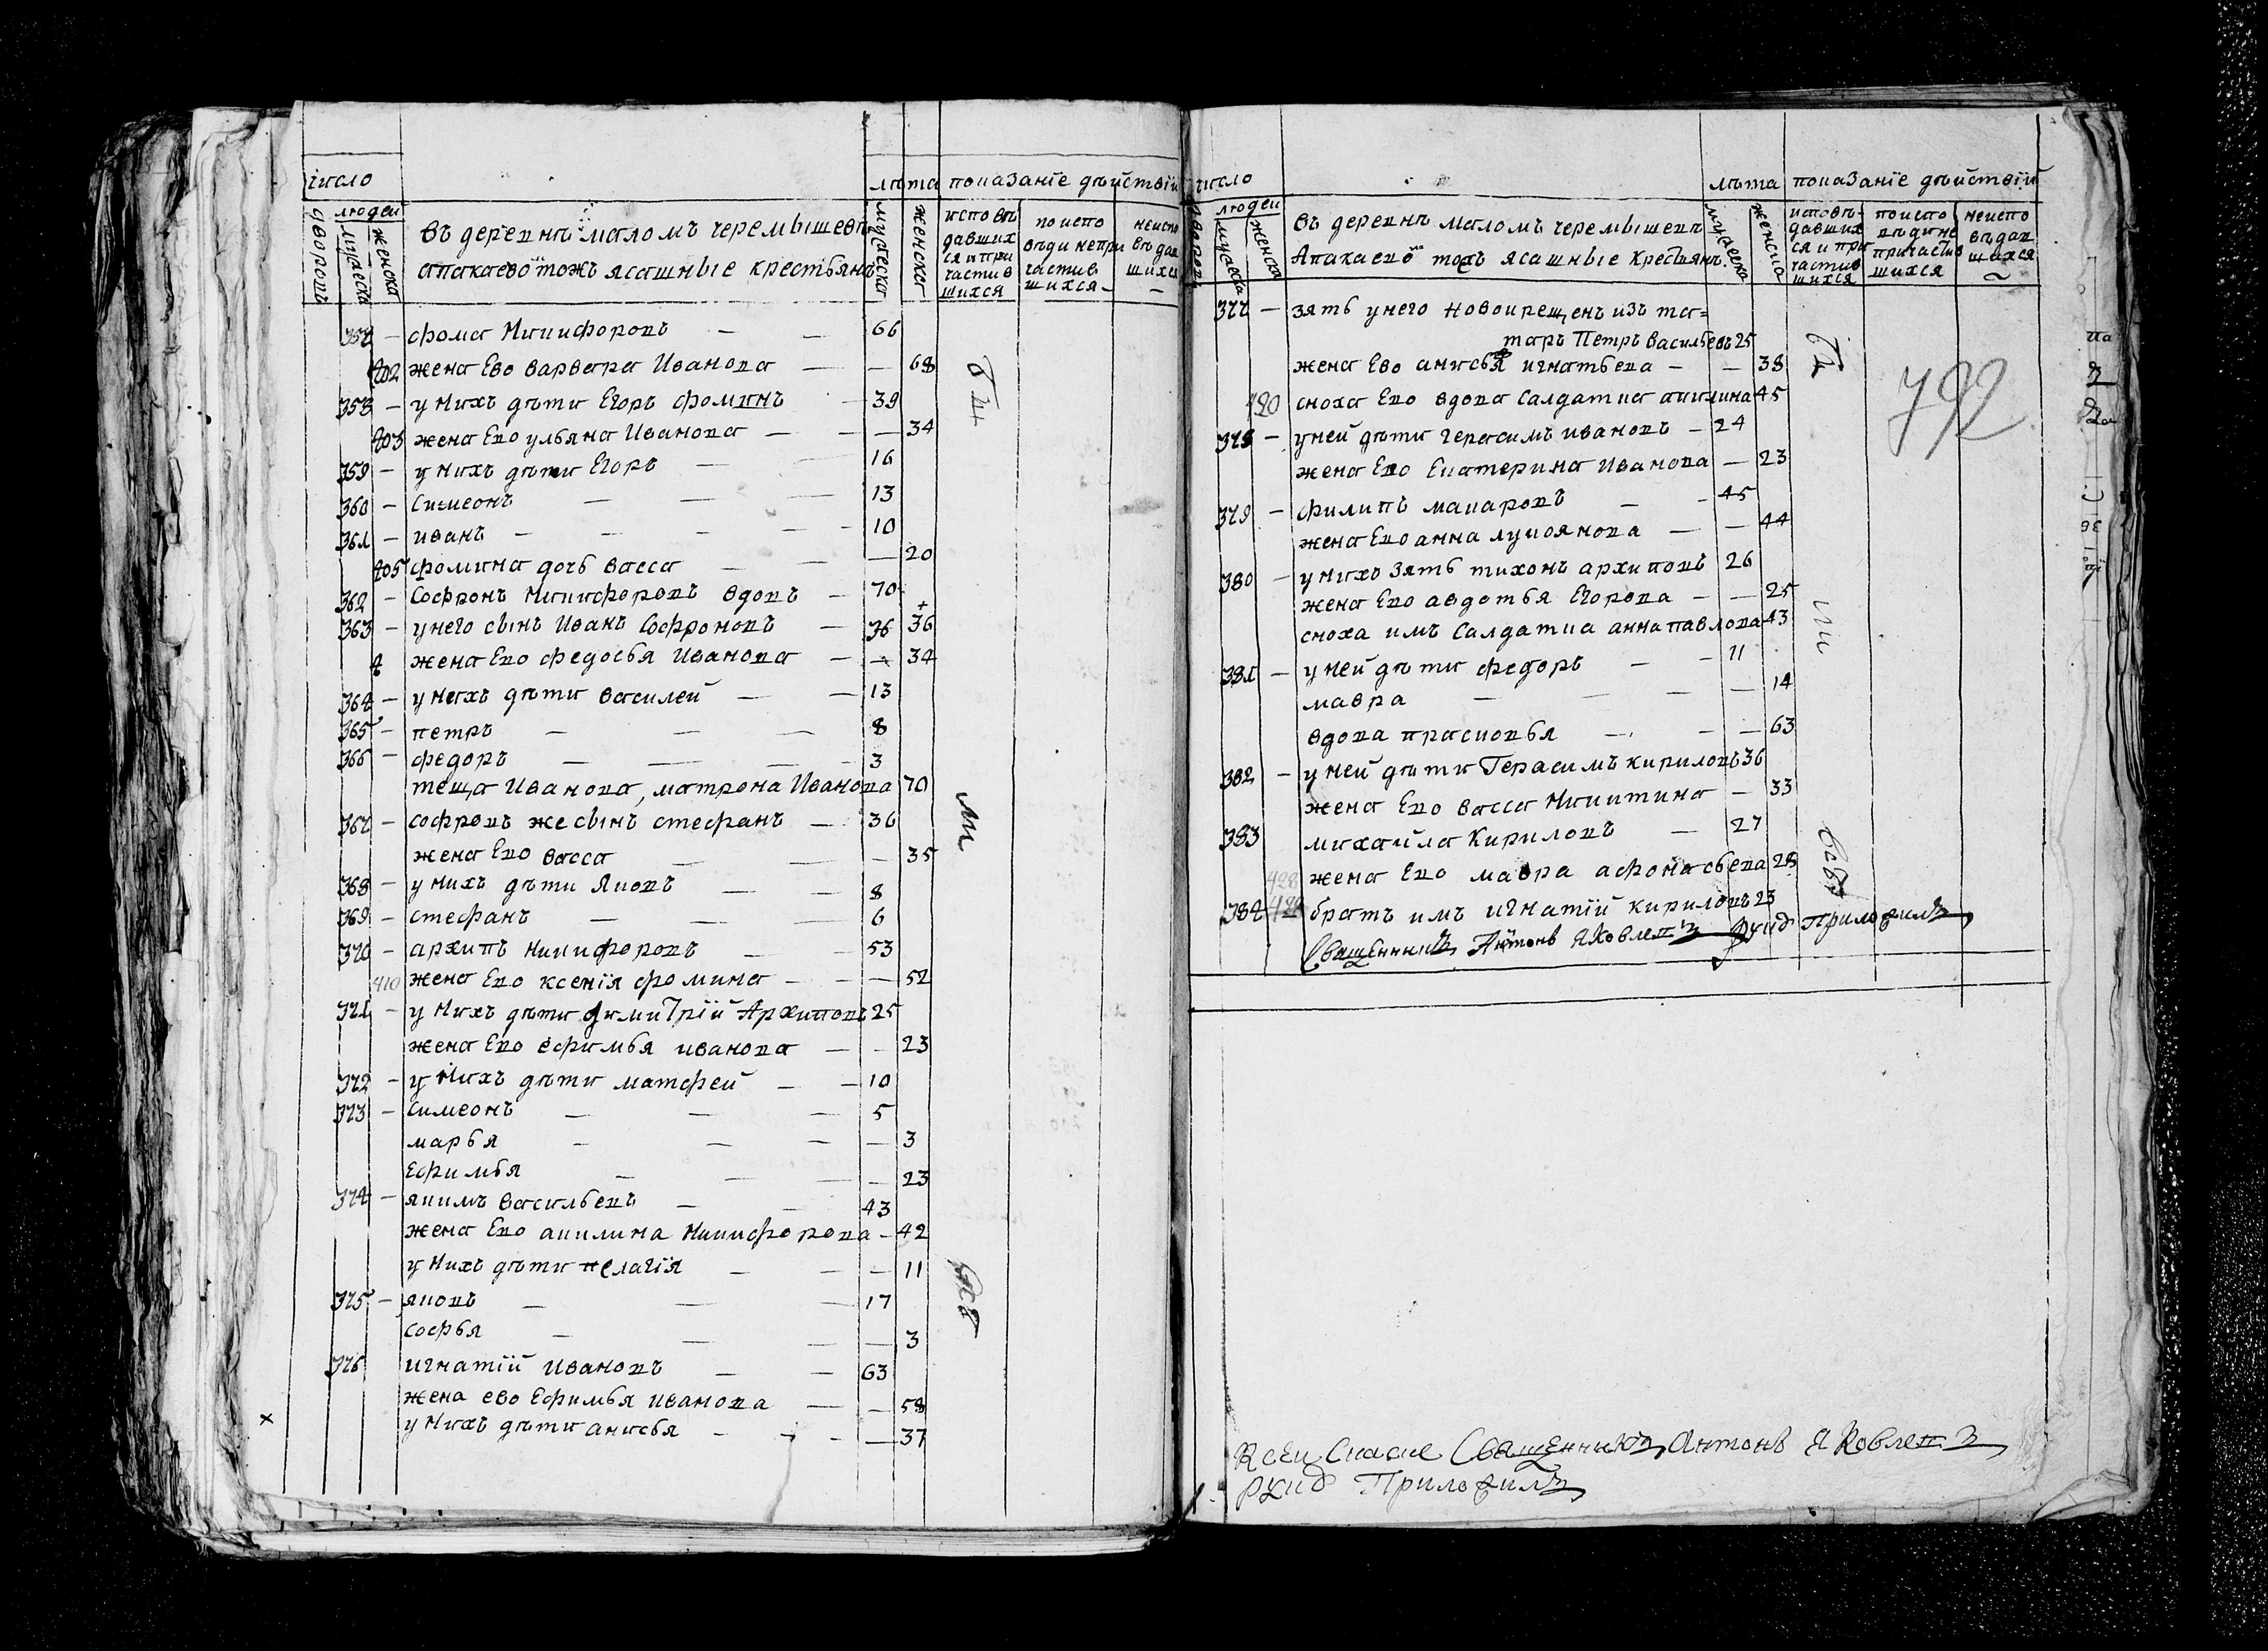 число
лѣта показанїе дѣйствїй
дворовъ
людей
мужеска
женска
въ деревнѣ маломъ черемышевѣ
апакаево тожъ ясашные крестьянъ
мужеска
женска
исповѣ
давших
ся и при
частив
шихся
по испо
вѣди непри
частив
шихся
неиспо
вѣдав
шихся
357 — фома Никифоровъ — — 66
402 жена Ево варвара Иванова — — 68
358 — у нихъ дѣти Егоръ фоминъ — 39
403 жена Ево ульяна Иванова — — 34
359 — у нихъ дѣти Егоръ — — 16
360 — Симеонъ — — — 13
361 — иванъ — — — — 10
405 фомина дочь васса — — — 20
362 — Софронъ Никифоровъ вдовъ — 70
363 — у него сынъ Иванъ Софроновъ — 36 36
жена Ево федосья Иванова — — 34
364 — у нихъ дѣти василей — — 13
365 — петръ — — — 8
366 — федоръ — — — — 3
теща Иванова, матрона Иванова 70
367 — софровъ же сынъ стефанъ — 36
жена Ево васса — — — 35
368 — у нихъ дѣти Яковъ — — 8
369 — стефанъ — — — 6
370 — архипъ Никифоровъ — — 53
410 жена Ево ксенїя фомина — — — 52
371 — у нихъ дѣти димитрїй Архиповъ 25
жена Ево ефимья иванова — — 23
372 — у нихъ дѣти матфей — — 10
373 — симеонъ — — — 5
марья — — — — 3
Ефимья — — — — 23
374 — якимъ васильевъ — — 43
жена Ево акилина Никифорова — 42
у нихъ дѣти пелагїя — — — 11
375 — яковъ — — — 17
софья — — — 3
376 игнатїй Ивановъ — — 63
жена ево Ефимья иванова — — 58
у нихъ дѣти анисья — — — — 37
число
лѣта показанїе дѣйствїй
дворовъ
людей
мужеска
женска
въ деревнѣ маломъ черемышевѣ
Апакаево тожъ ясашные крестьянъ
мужеска
женска
исповѣ-
давших
ся и при
частив
шихся
по испо
вѣди не
причастив
шихся
неиспо
вѣдав
шихся
377 — зять у него новокрещенъ изъ та=
таръ Петръ васильевъ 25
792
жена Ево анисья игнатьева — — 38
420 сноха Ево вдова салдатка акилина 45
378 — у ней дѣти герасимъ ивановъ — 24
жена Ево Екатерина Иванова — 23
379 — филипъ макаровъ — — 45
жена Ево анна лукоянова — — 44
380 — у нихъ зять тихонъ архиповъ 26
жена Ево авдотья Егорова — — 25
сноха имъ салдатка анна павлова 43
381 — у ней дѣти федоръ — — 11
мавра — — — — 14
вдова прасковья — — — 63
382 — у ней дѣти Герасимъ кириловъ 36
жена Ево васса Никитина — 33
383 михайла Кириловъ — 27
428 жена Ево мавра афонасьева 28
384 братъ имъ игнатїй кириловъ 23
Священникъ Антонъ Яковлевъ руку Приложилъ
К сей Скаске Священникъ Антонъ Яковлевъ
руку Приложилъ